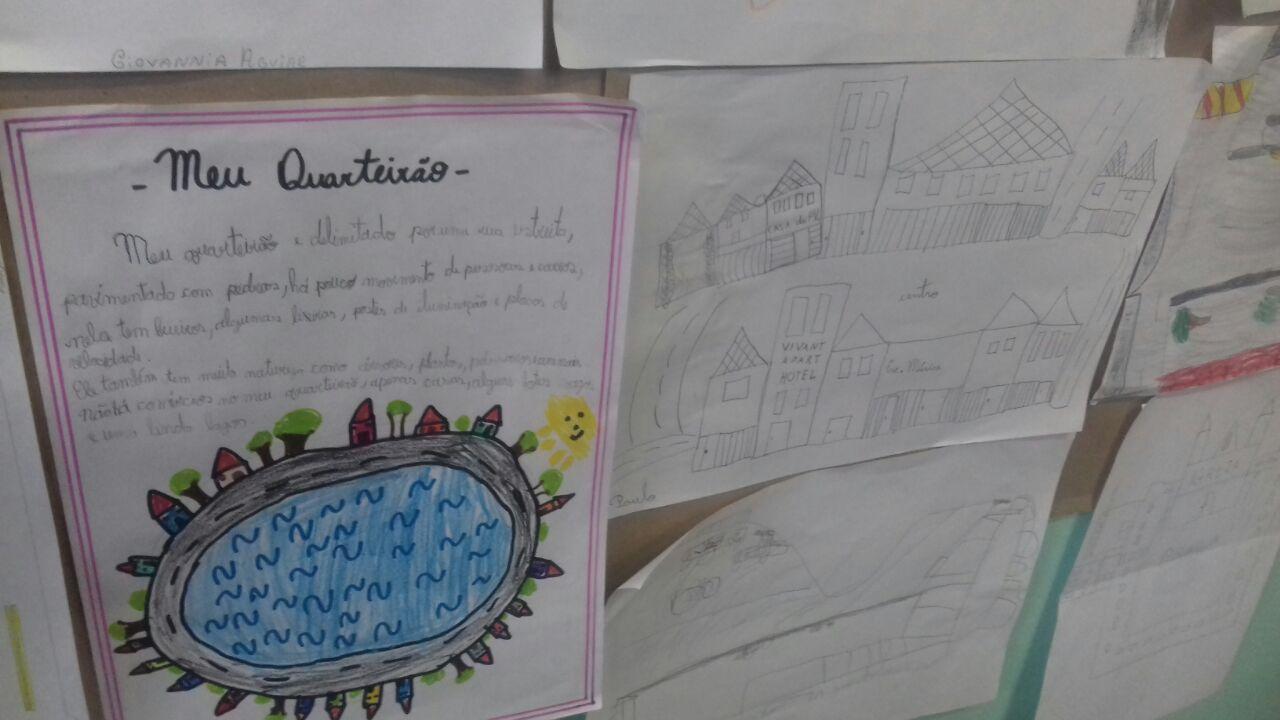 GIOVANNIA
- Meu Quarteirão -
Meu quarteirão e delimitado por uma rua estreita,
pavimentado com pedras, há pouco movimento de pessoas e carros,
nela tem bueiros, algumas lixeiras, postes de iluminação e placas de
velocidade.
Ele também tem muita natureza como árvores, plantas,
não há comércios no meu quarteirão, apenas casas, alguns lotes vagos
e uma lindo lagoa.
CASA do
centro
VIVANT
APART
HOTEL
Música
Paulo